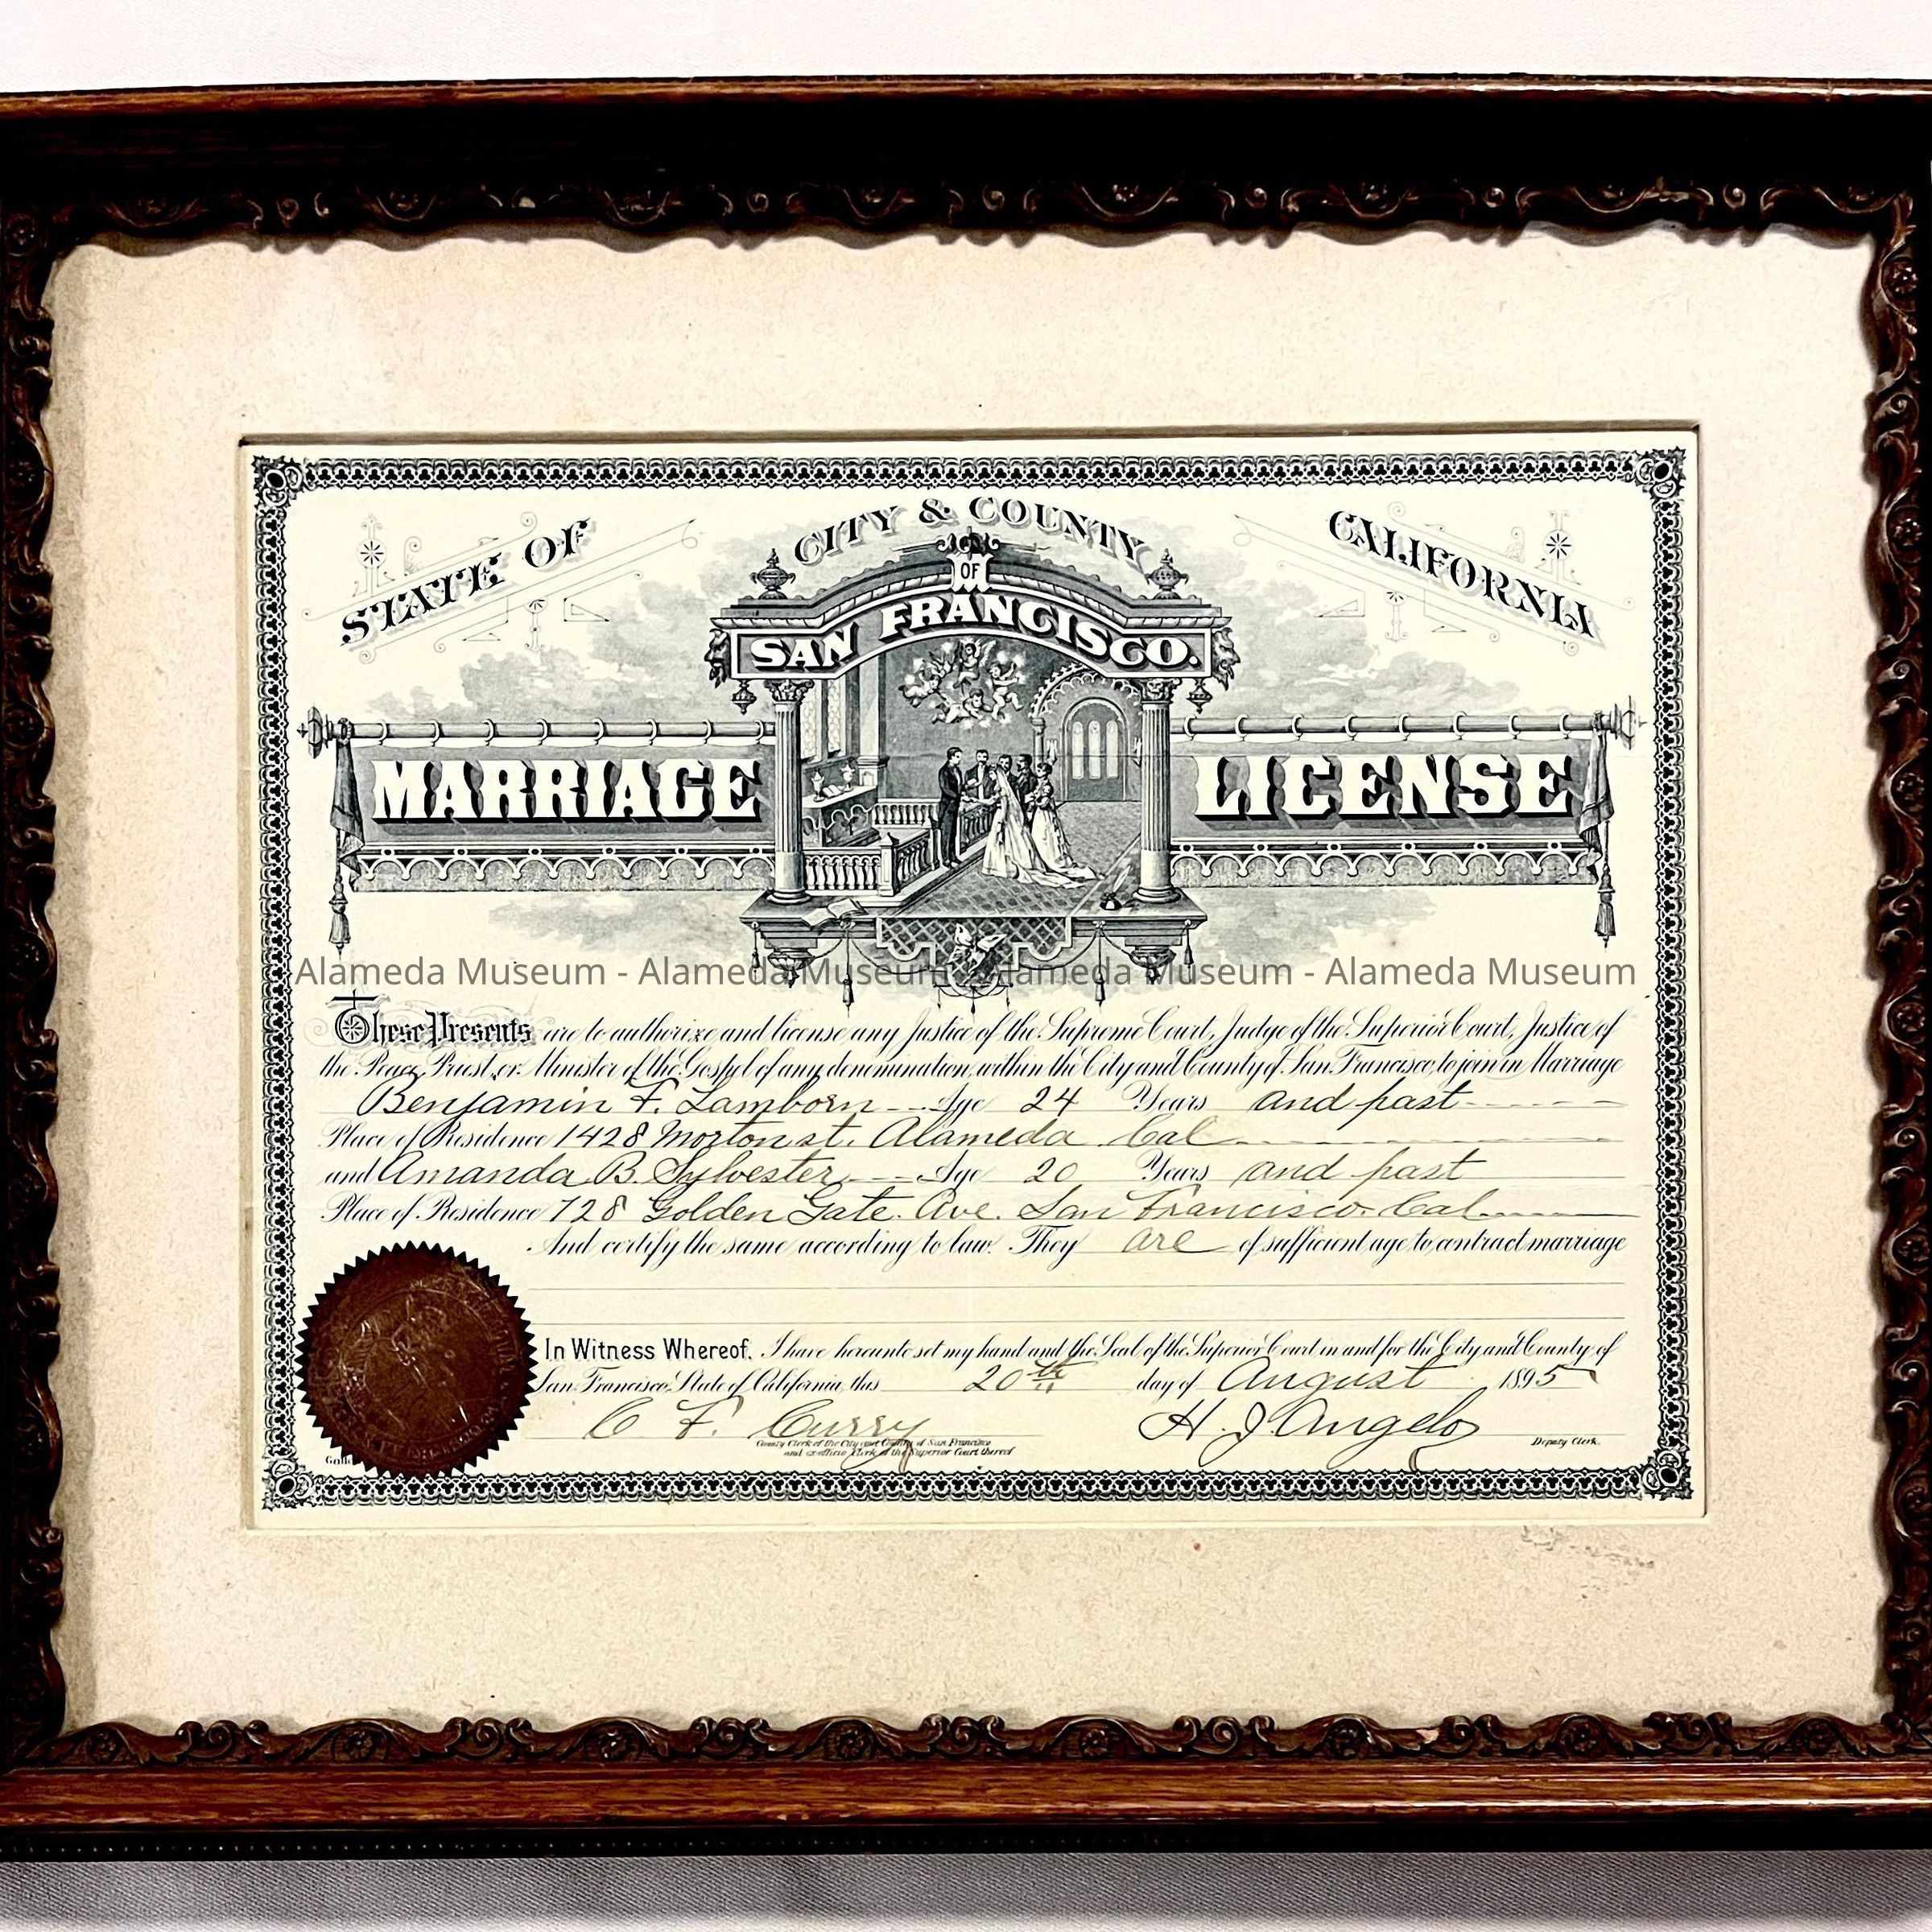 STATE OF
CITY & COUNTY
CALIFORNIA
OF
SAN FRANCISCO.
MARRIAGE LICENSE
Alameda Museum - Alameda Museum - Alameda Museum - Alameda Museum
These Presents are to authorize and license any Justice of the Supreme Court, Judge of the Superior Court, Justice of
the Peace, Priest, or Minister of the Gospel of any denomination, within the City and County of San Francisco, to join in Marriage
Benjamin F. Lamborn Age 24 Years and past
Place of Residence 1428 Morton st. Alameda Cal
and Amanda B. Sylvester Age 20 Years and past
Place of Residence 728 Golden Gate Ave. San Francisco. Cal
And certify the same according to law. They are of sufficient age to contract marriage
In Witness Whereof, I have hereunto set my hand and the Seal of the Superior Court in and for the City and County of
San Francisco, State of California, this 20th day of August 1895
C F. Curry H. J. Angelo
County Clerk of the City and County of San Francisco Deputy Clerk.
and ex-officio Clerk of the Superior Court thereof